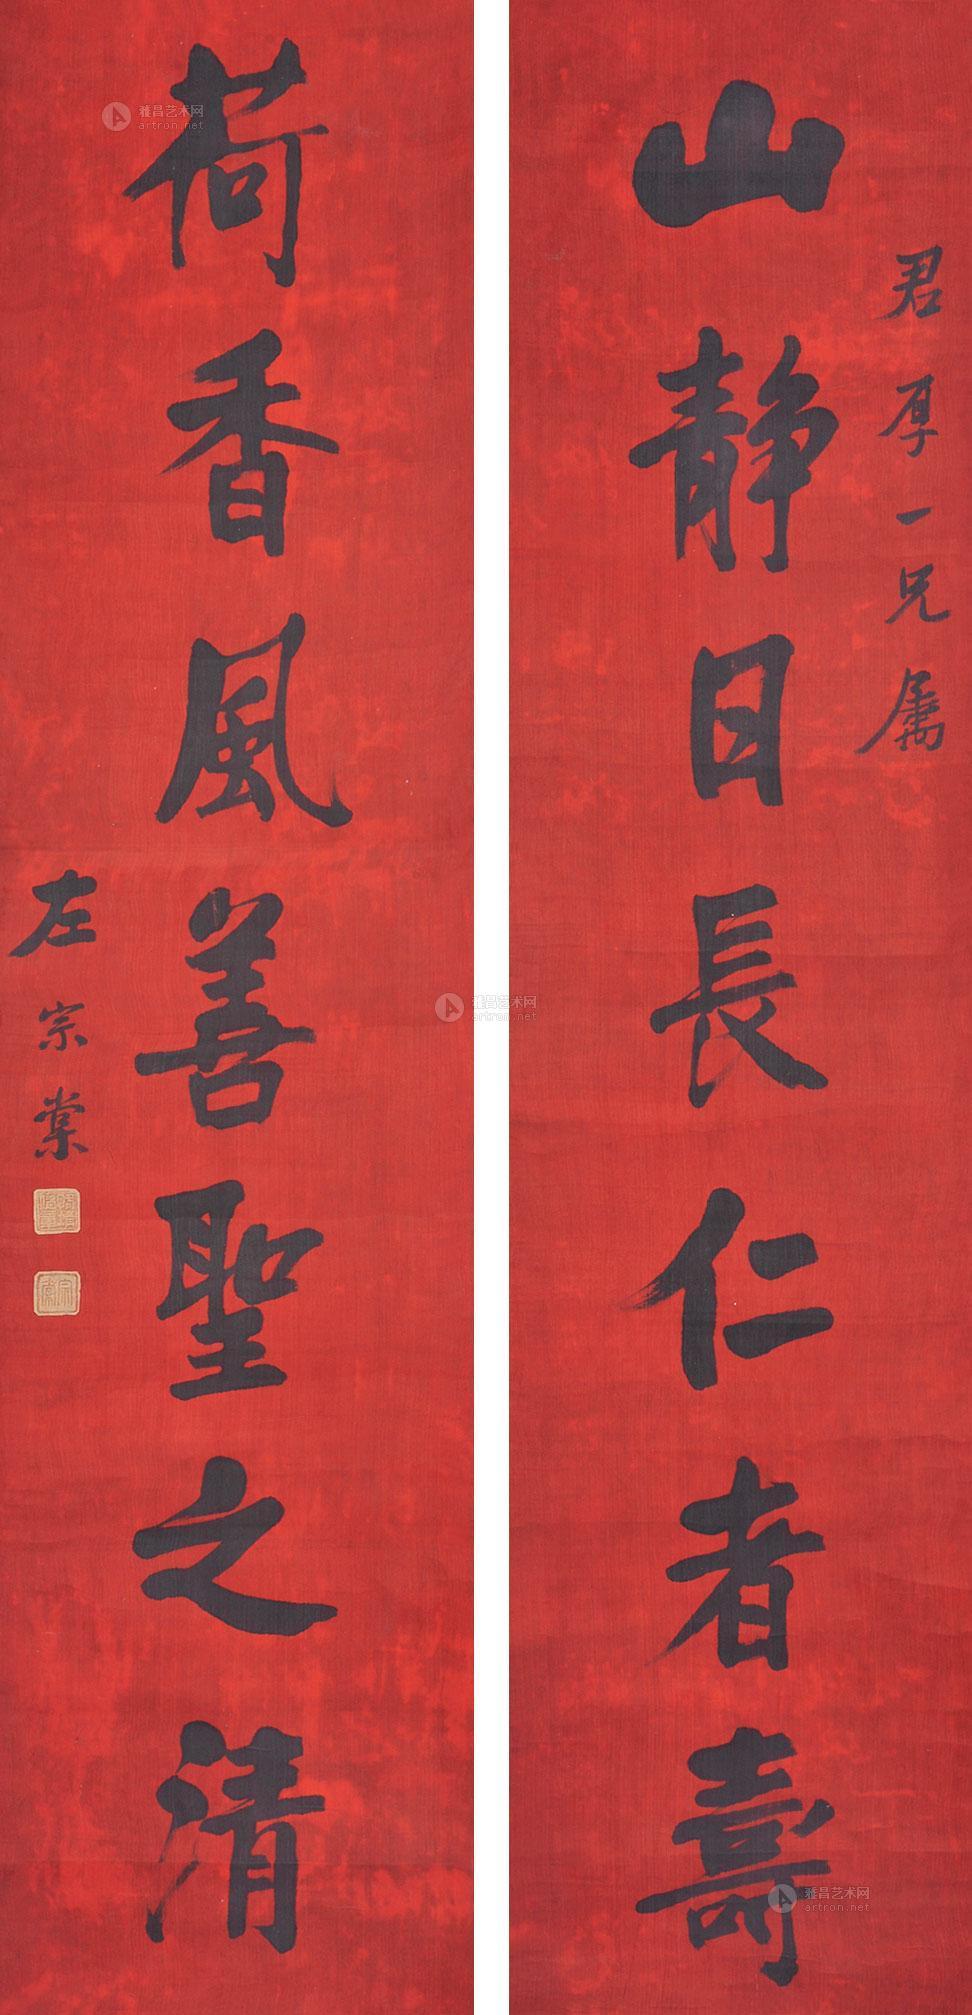 君厚一兄属
山静日長仁者壽
荷香風善聖之清
左宗棠
雅昌艺术网
artron.net
雅昌艺术网
artron.net
雅昌艺术网
artron.net